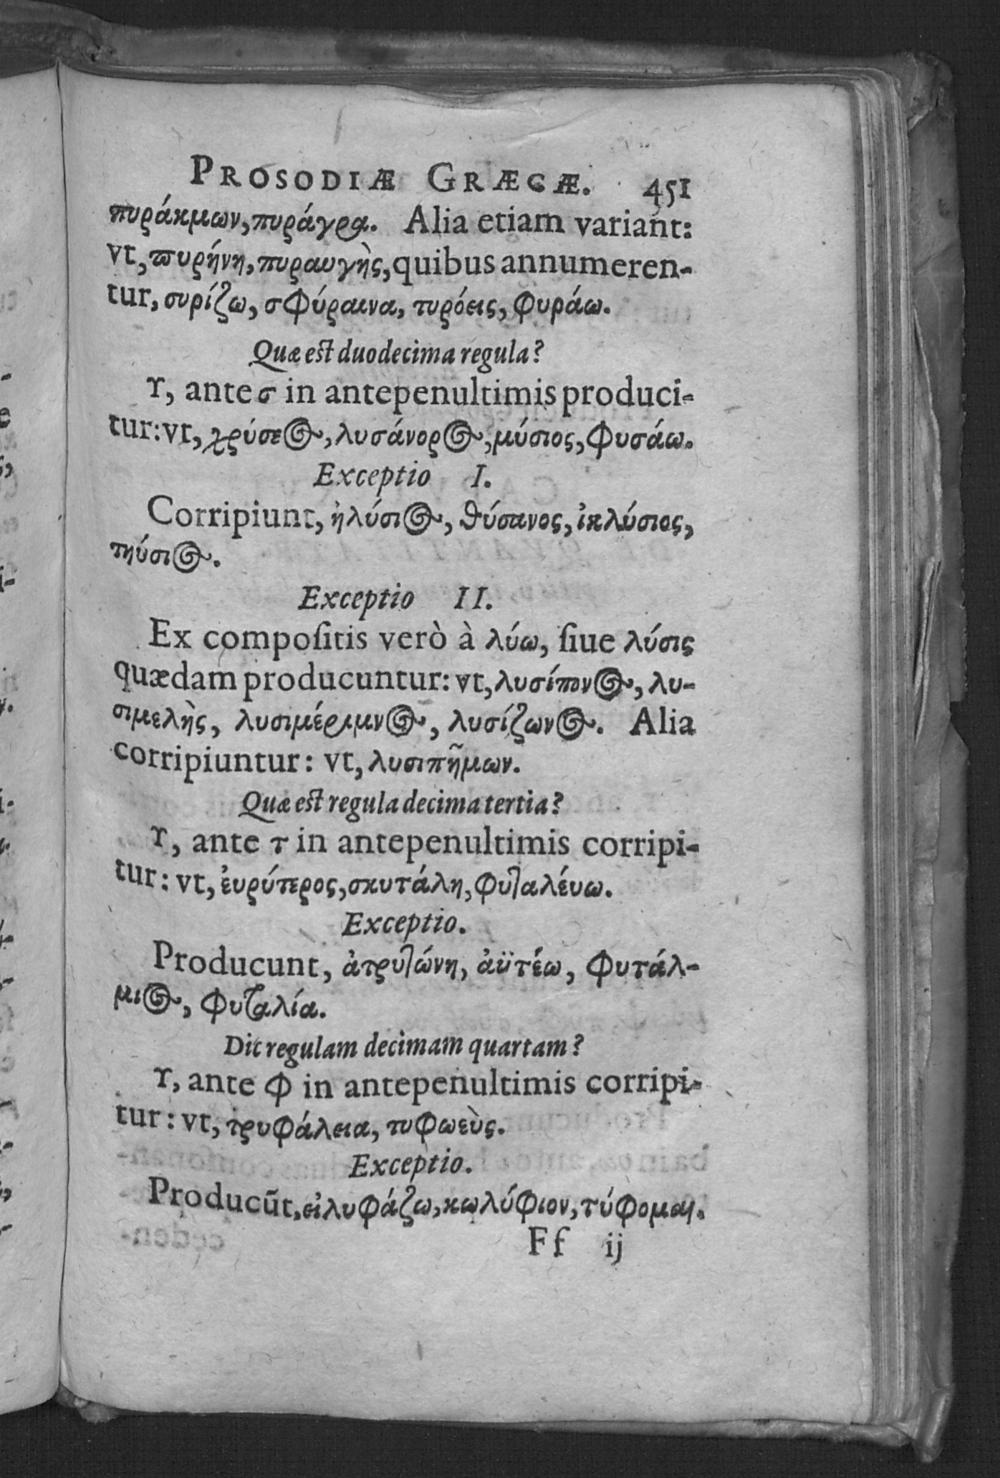 PROSODIÆ GRÆCÆ. 451
πυράκμων, πυράγρα. Alia etiam variant:
vt, πυρήνη, πυραυγὴς, quibus annumeren-
tur, συρίζω, σφύραινα, τυρόεις, φυράω.
Quæ est duodecima regula?
Υ, ante σ in antepenultimis produci-
tur: vt, χρύσεος, λυσάνορος, μύσιος, φυσάω.
Exceptio I.
Corripiunt, ἠλύσιος, θύσανος, ἰκλύσιος,
τηύσιος.
Exceptio II.
Ex compoſitis verò à λύω, ſiue λύσις
quædam producuntur: vt, λυσίπονος, λυ-
σιμελὴς, λυσιμέριμνος, λυσίζωνος. Alia
corripiuntur: vt, λυσιπῆμων.
Quæ est regula decima tertia?
Υ, ante τ in antepenultimis corripi-
tur: vt, ἐυρύτερος, σκυτάλη, φυταλέυω.
Exceptio.
Producunt, ἀτρυτώνη, ἀϋτέω, φυτάλ-
μιος, φυταλία.
Dic regulam decimam quartam?
Υ, ante φ in antepenultimis corripi-
tur: vt, τρυφάλεια, τυφωεὺς.
Exceptio.
Producũt, εἰλυφάζω, κωλύφιον, τύφομαι.
Ff ij